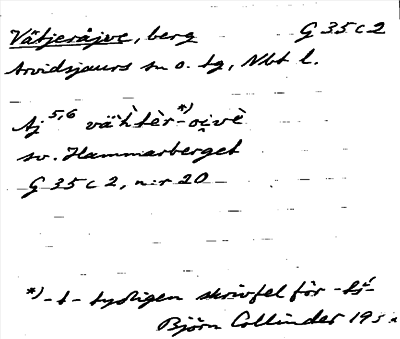 Vätjeråjve, berg G 35 c 2
Arvidsjaurs sn o. tg, Nbt l.
Aj 5,6 vä̀htèr-*) oi̭vè
sv. Hammarberget
G 35 c 2, nr 20
*) -t- tydligen skrivfel för -tś-
Björn Collinder 195